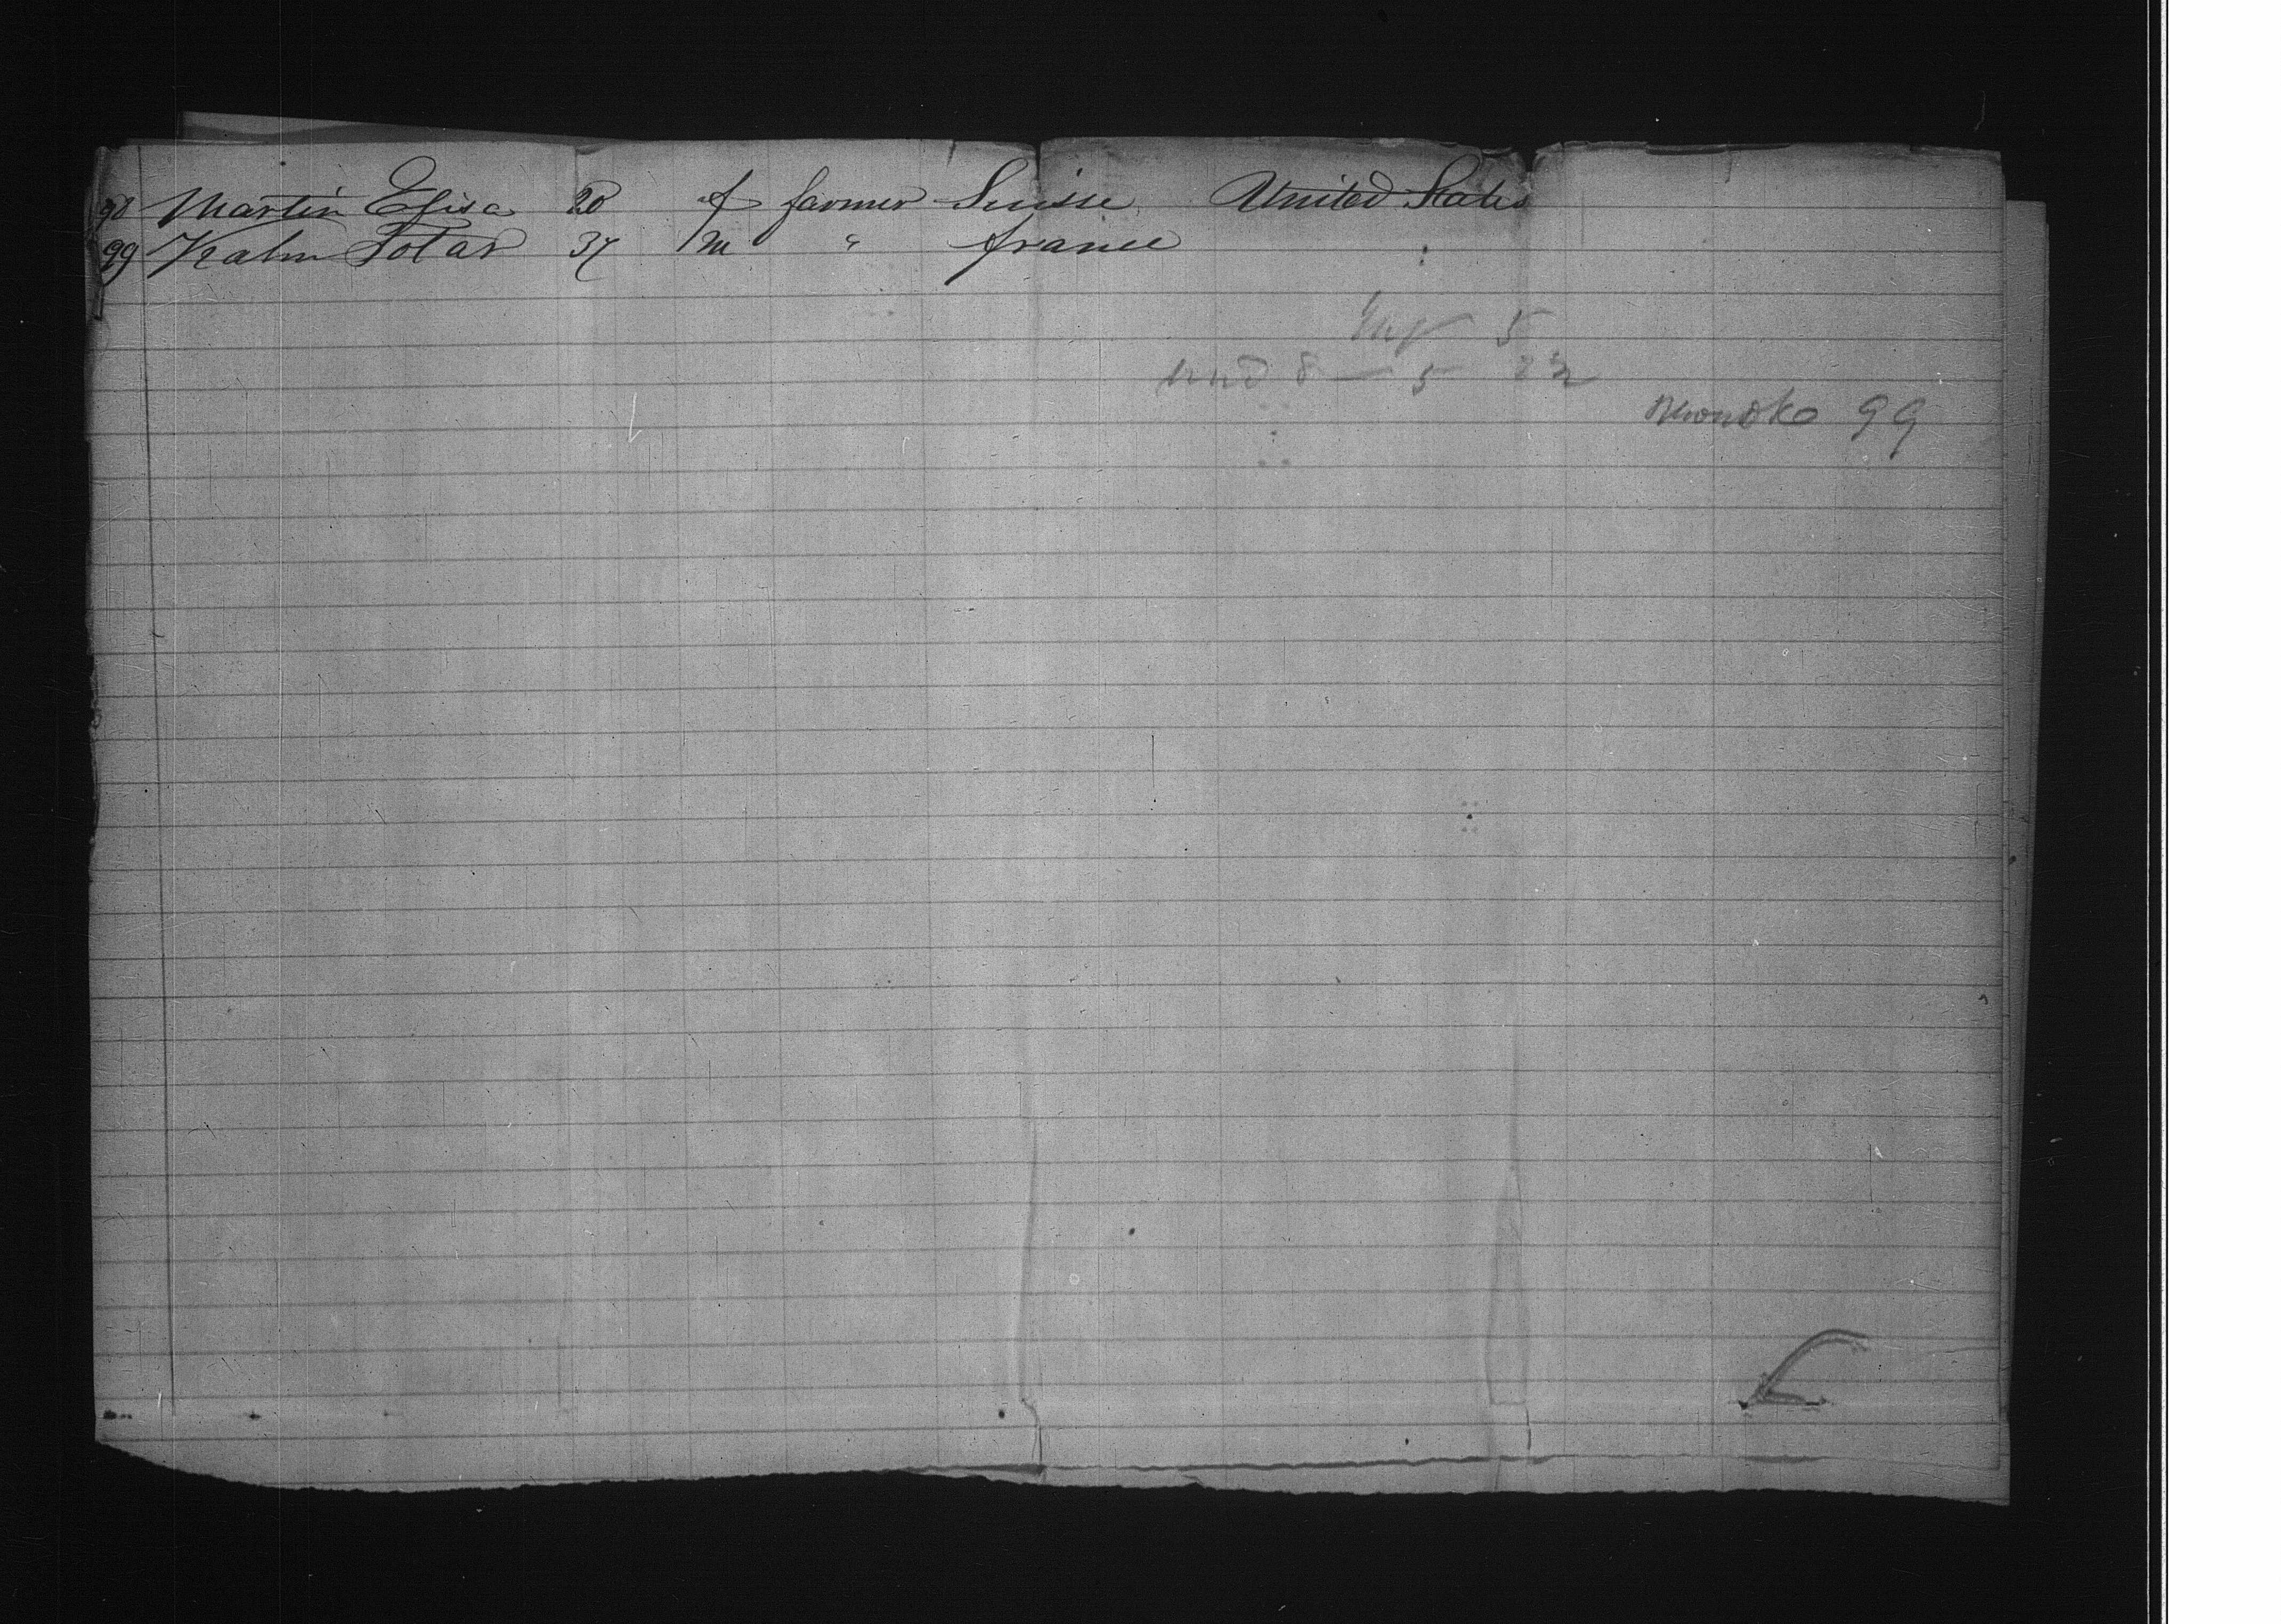 98 Martin Elisa 20 f farmer Suisse United States
99 Kahn Lotar 37 m " france
5
8 — 5
99